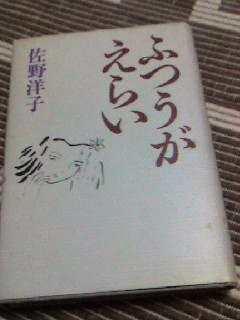 ふつうが
えらい
佐野洋子